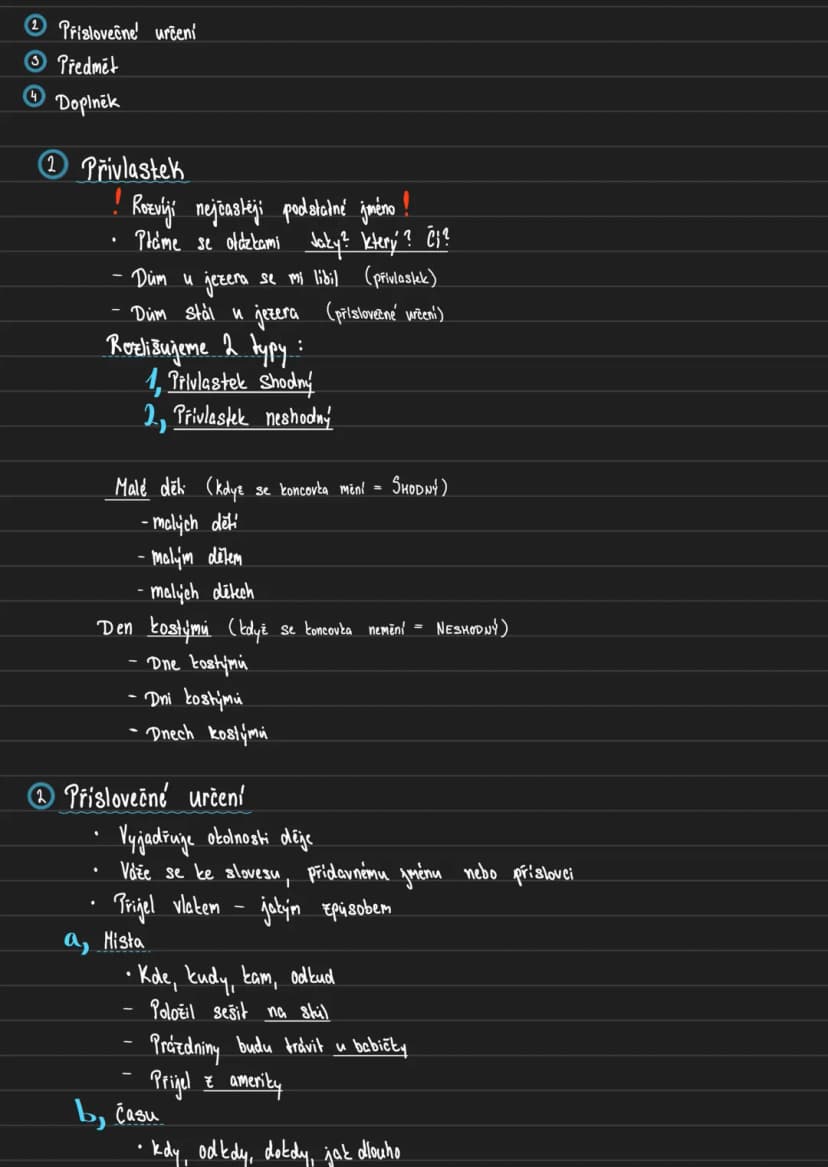 ② Příslovečné určení
③ Předmět
④ Doplněk
① Přívlastek
! Rozvíjí nejčastěji podstatné jméno !
• Ptáme se otázkami Jaký? který? Čí?
- Dům u jezera se mi líbil (přívlastek)
- Dům stál u jezera (příslovečné určení)
Rozlišujeme 2 typy:
1, Přívlastek shodný
2, Přívlastek neshodný
Malé děti (když se koncovka mění = SHODNÝ)
- malých dětí
- malým dětem
- malých dětech
Den kostýmů (když se koncovka nemění = NESHODNÝ)
- Dne kostýmů
- Dni kostýmů
- Dnech kostýmů
② Příslovečné určení
• Vyjadřuje okolnosti děje
• Váže se ke slovesu, přídavnému jménu nebo příslovci
• Přijel vlakem - jakým způsobem
a, Místa
• Kde, kudy, kam, odkud
- Položil sešit na stůl
- Prázdniny budu trávit u babičky
- Přijel z ameriky
b, Času
• kdy, odkdy, dokdy, jak dlouho